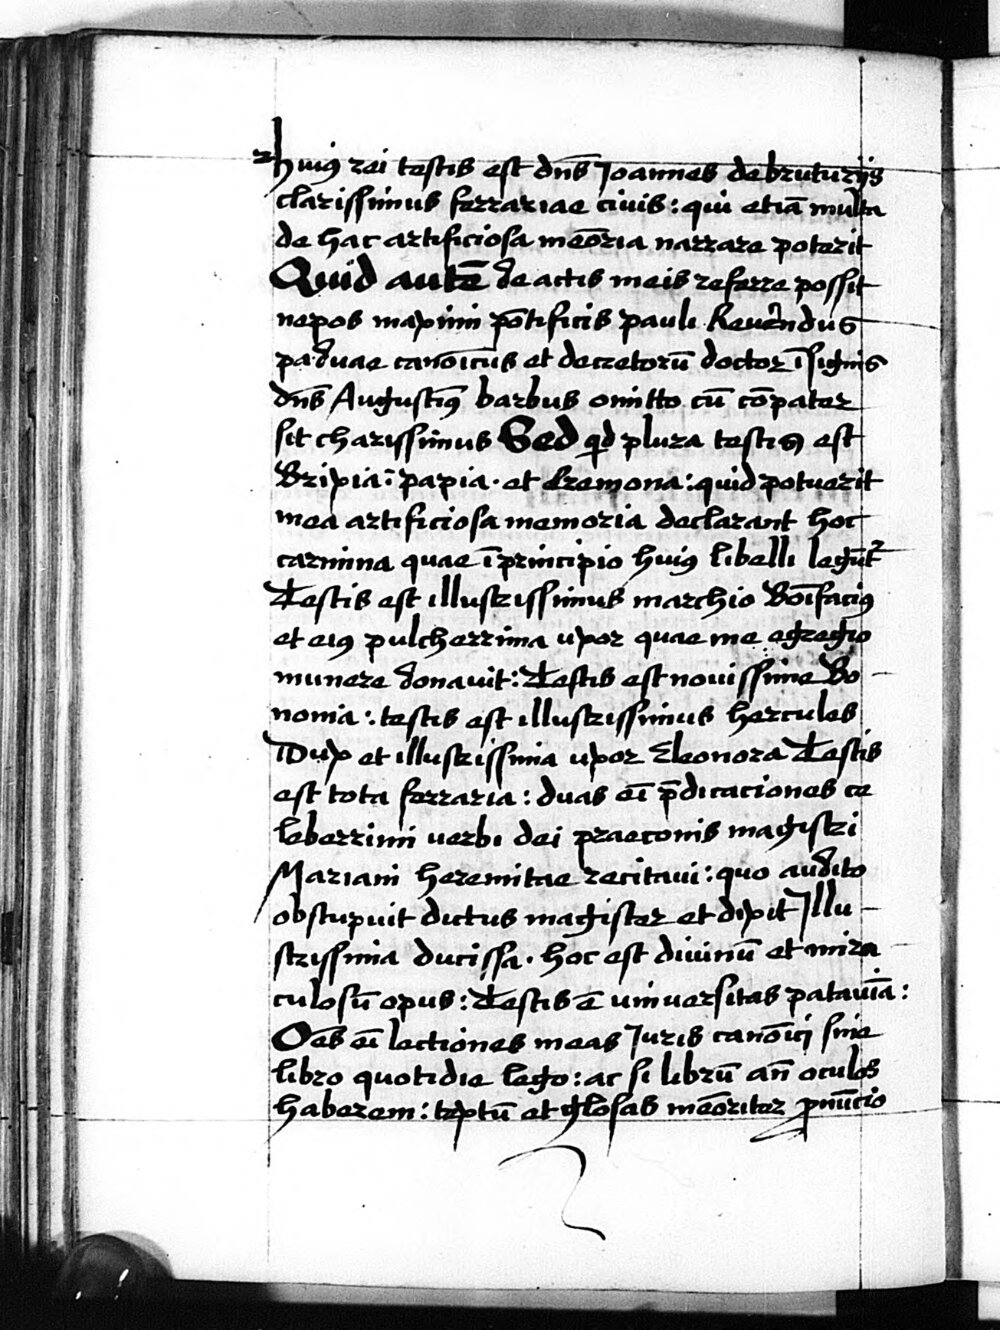 huiꝰ rei testis est dñs Joannes de bruturijs
clarissimus ferrariae ciuis: qui etiā multa
de hac artificiosa meōria narrare poterit
Quid autē de actis meis referre possit
nepos maximi pōtificis pauli Reuerendus
paduae canoīcus et decretorū doctor īsignis
dñs Augustinꝰ barbus omitto cū cōpater
sit charissimus Sed qd plura testis est
Brixia: papia. et Cremona: quid potuerit
mea artificiosa memoria declarant hoc
carmina quae ī principio huiꝰ libelli legūtᷣ
Testis est illustrissimus marchio Boīfaciꝰ
et eiꝰ pulcherrima uxor quae me egregio
munere donauit: Testis est nouissime Bo
nonia: testis est illustrissimus hercules
Dux et illustrissima uxor Eleonora Testis
est tota ferraria: duas eī p̄dicaciones ce
leberrimi uerbi dei praeconis magistri
Mariani heremitae recitaui: quo audito
obstupuit dictus magister et dixit Illu
strissima ducissa. hoc est diuinū et mira
culosū opus: Testis ē uniuersitas patauīa:
Oēs eī lectiones meas Juris canoīci sine
libro quotidie lego: ac si librū an̄ oculos
haberem: textū et glosas meōriter pnūcio